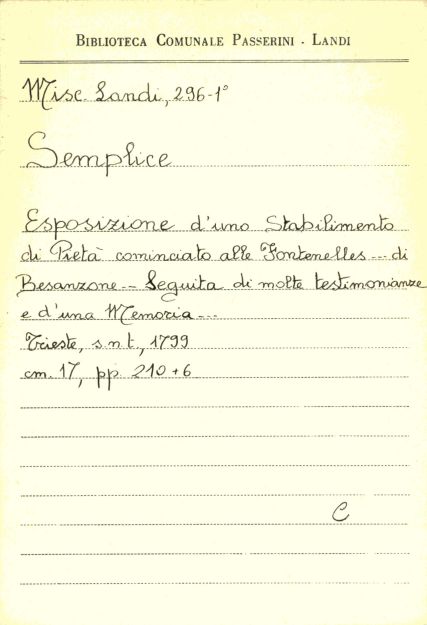 BIBLIOTECA COMUNALE PASSERINI - LANDI
Misc. Landi, 296-1°
Semplice
Esposizione d'uno Stabilimento
di Pietà cominciato alle Fontenelles... di
Besanzone... Seguita di molte testimonianze
e d'una Memoria...
Trieste, s.n.t., 1799
cm. 17, pp. 210+6
C